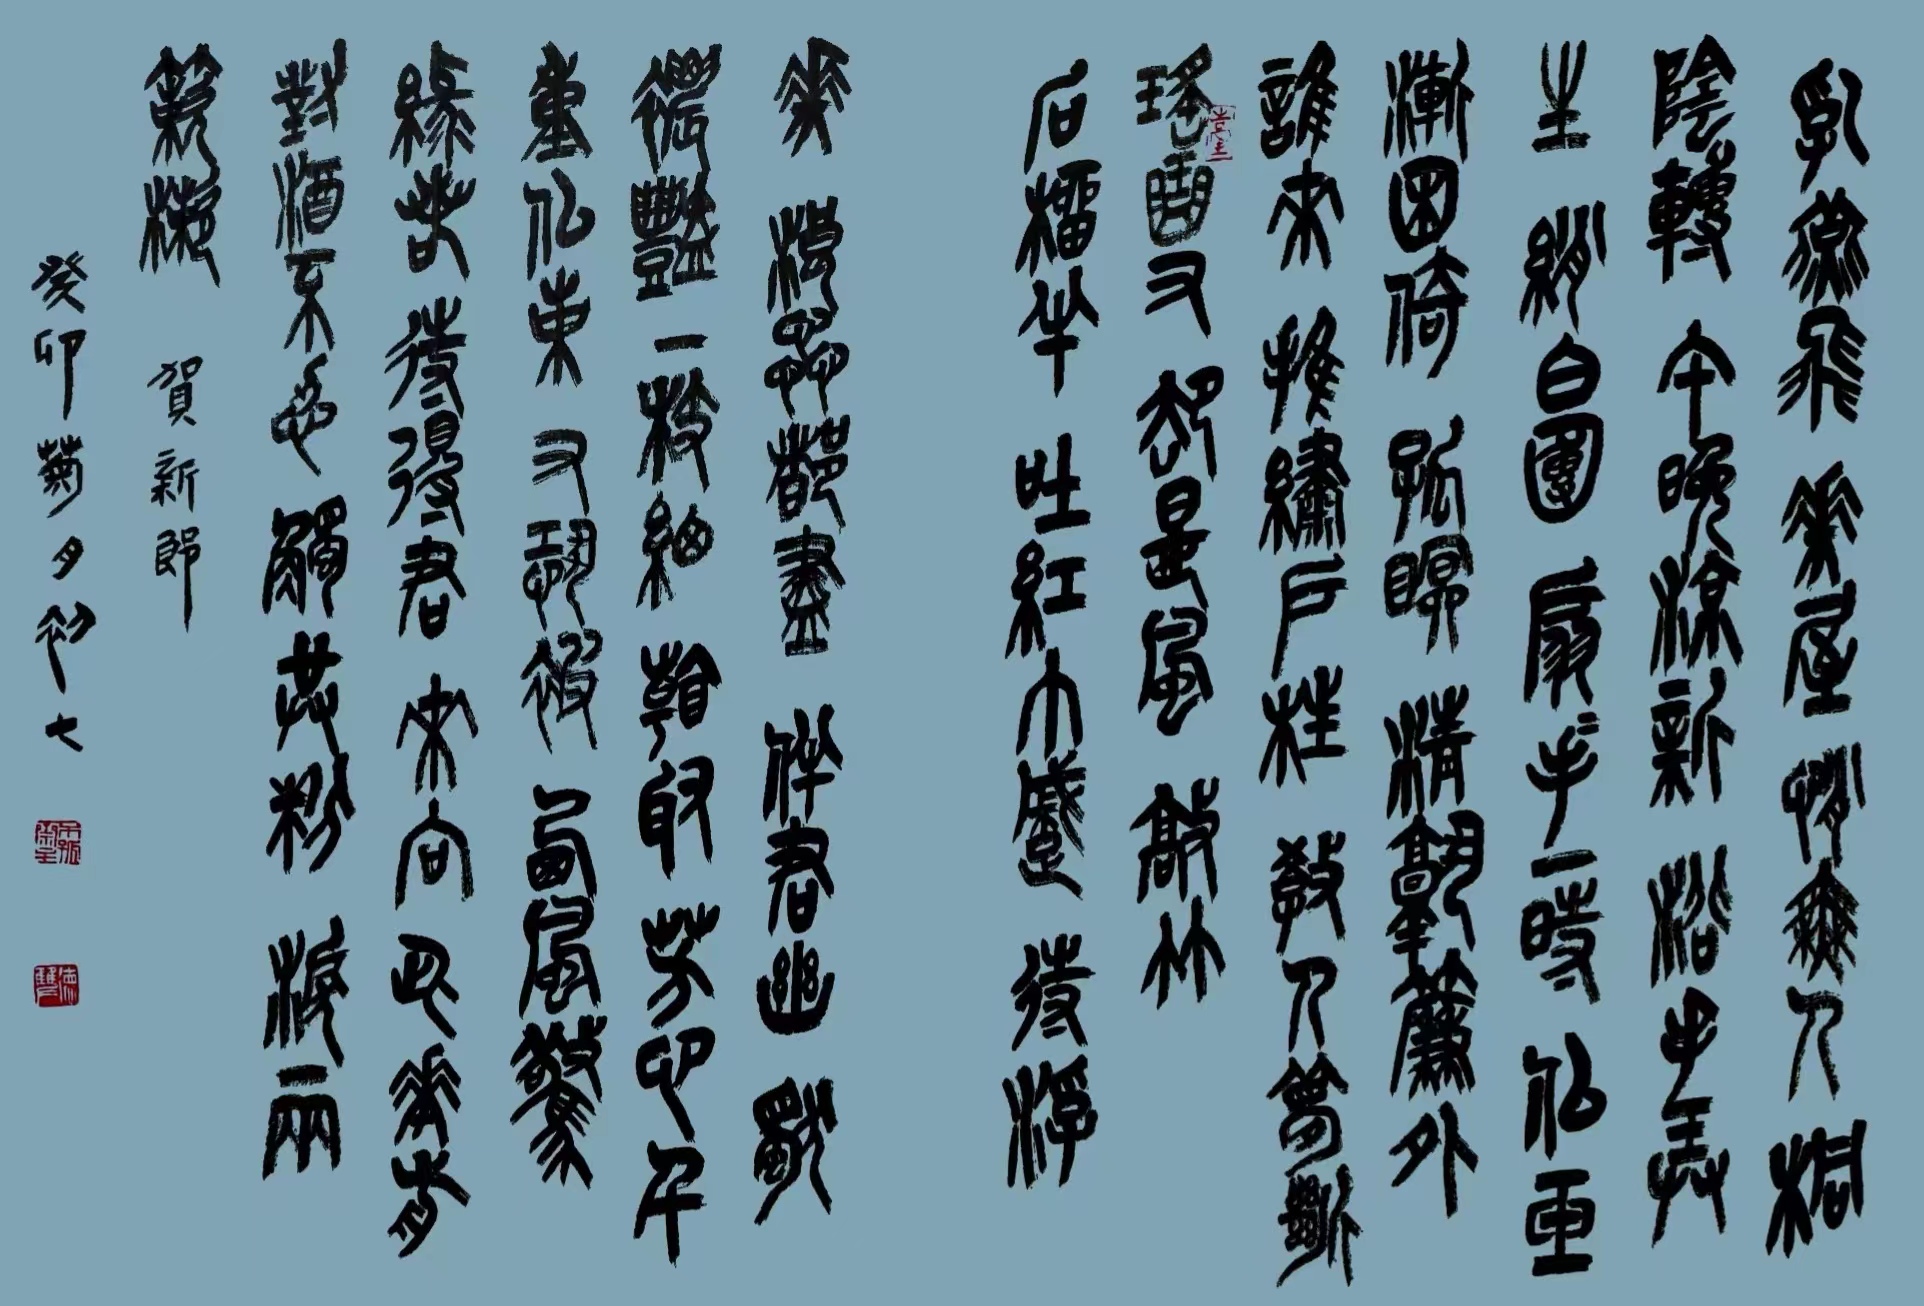 乳燕飛華屋悄無人桐
陰轉午晚涼新浴手弄
生綃白團扇〻手一時似玉
漸困倚孤眠清孰簾外
誰來推繡戶枉教人夢斷
瑤臺曲又却是風敲竹
石榴半吐紅巾蹙待浮
華浪蕊都盡伴君幽獨
穠豔一枝細看取芳心千
重似束又恐被西風驚
綠若待得君來向此華前
對酒不忍觸共粉淚兩
簌簌 賀新郎
癸卯菊月初七